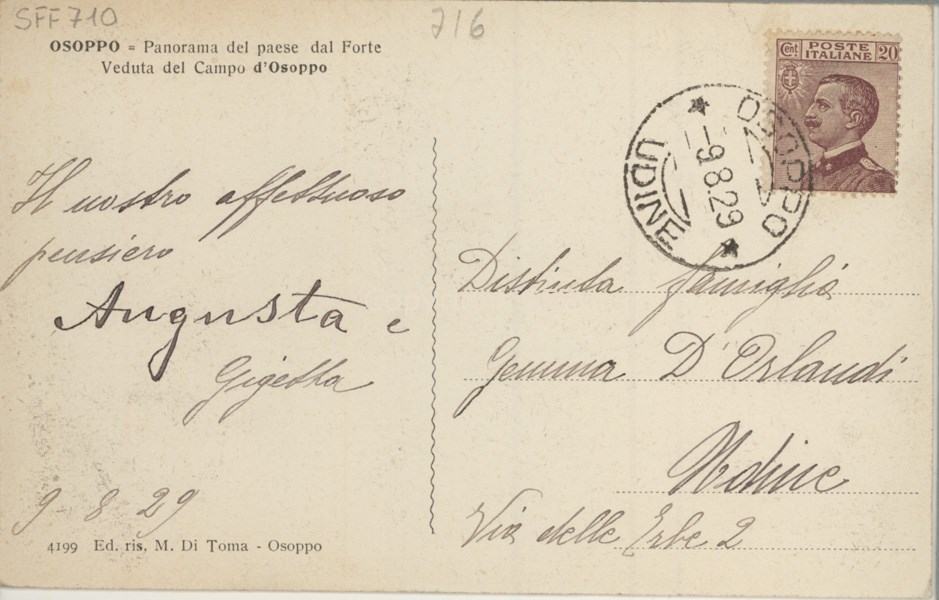 SFF 710
716
OSOPPO = Panorama del paese dal Forte
Veduta del Campo d'Osoppo
Cent. POSTE ITALIANE 20
OSOPPO
-9.8.29
UDINE
Il nostro affettuoso
pensiero
Augusta e
Gigetta
9-8 29
4199 Ed. ris. M. Di Toma - Osoppo
Distinta famiglia
Gemma D'Orlandi
Udine
Via delle Erbe 2